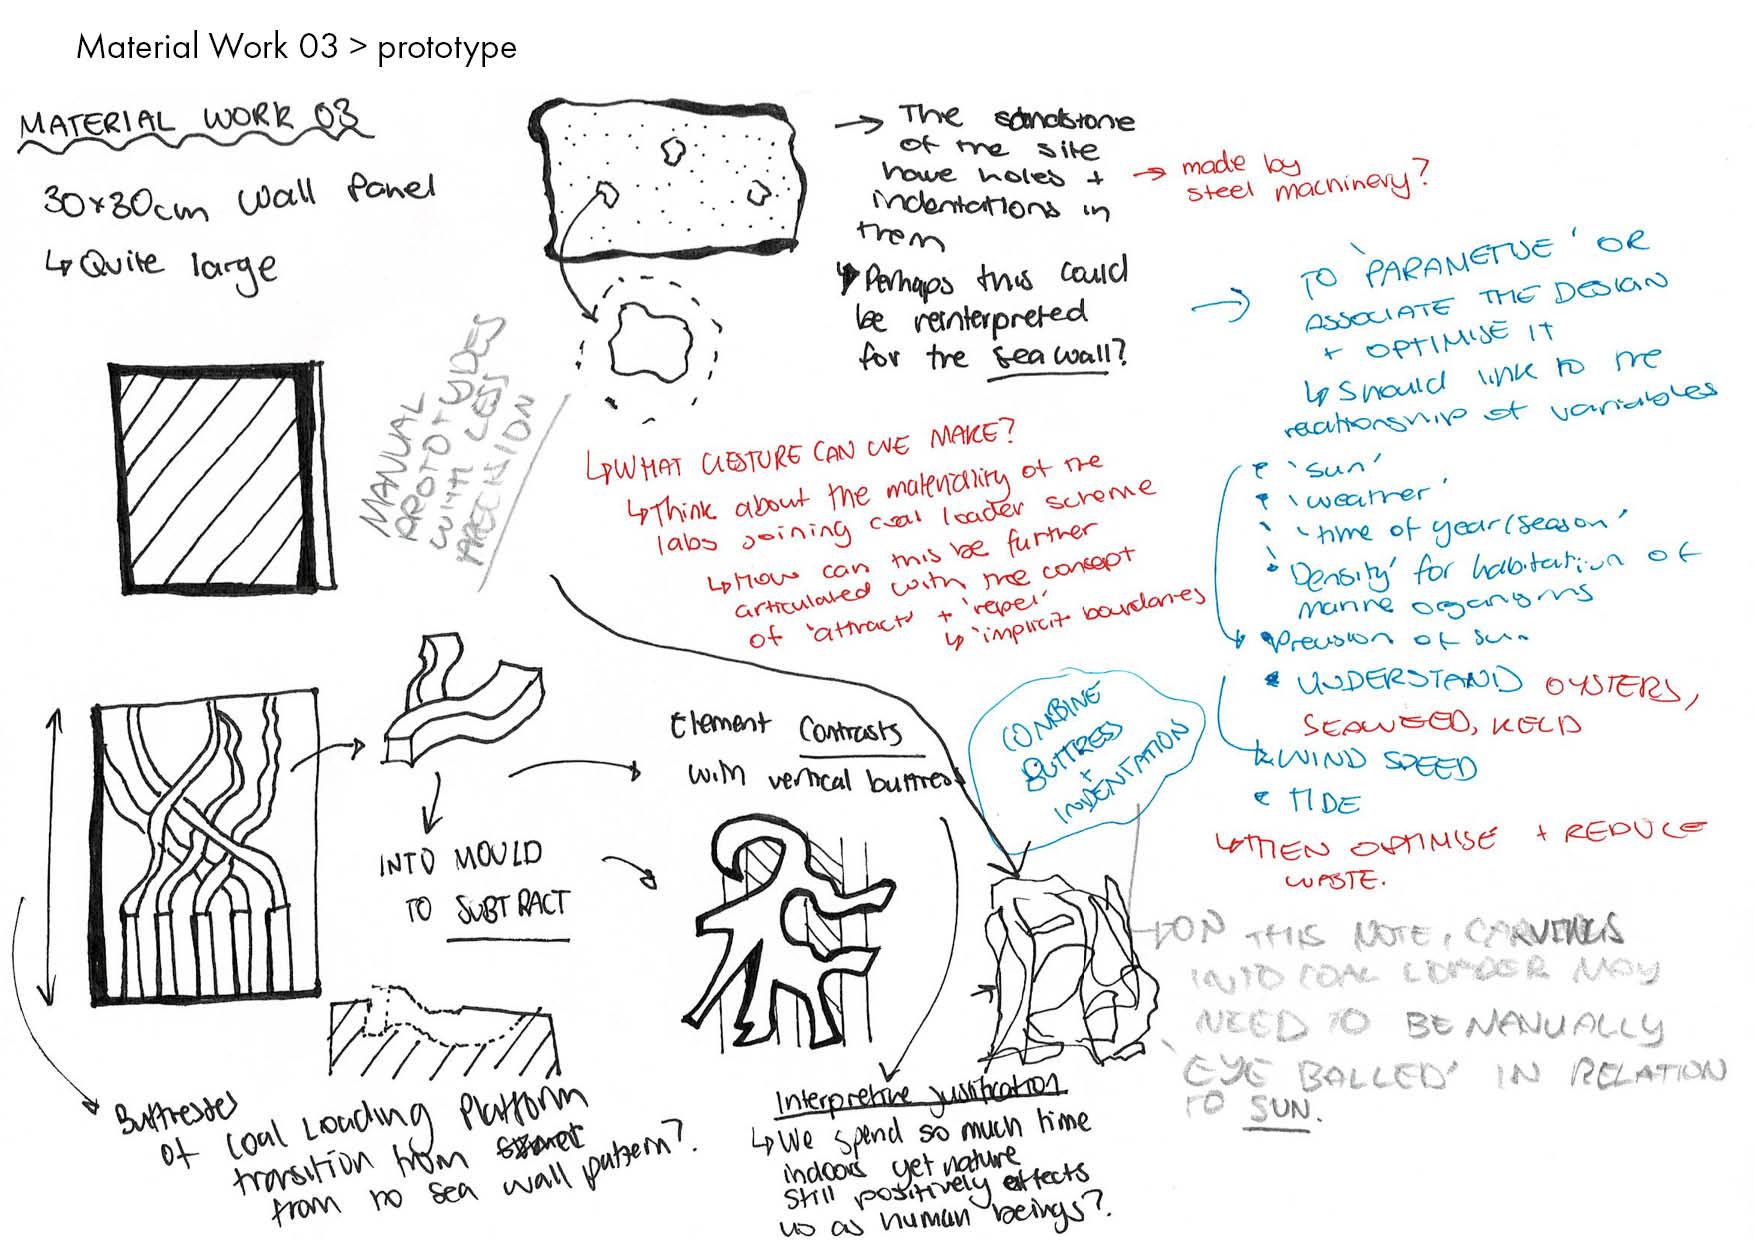 Material Work 03 > prototype
MATERIAL WORK 03
30x30cm Wall Panel
↳ Quite large
→ The sandstone
of the site
have holes +
indentations in
them
→ made by
steel machinery?
Perhaps this could
be reinterpreted
for the sea wall?
MANUAL
PROTOTYPES
WITH LESS
PRECISION
→ TO 'PARAMETUE' OR
ASSOCIATE THE DESIGN
+ OPTIMISE IT
↳ Should link to the
relationship of variables
• 'sun'
• 'weather'
• 'time of year/season'
• 'Density' for habitation of
marine organisms
• Precision of sun
• UNDERSTAND OYSTERS,
SEAWEED, KELP
WIND SPEED
• TIDE
↳ THEN OPTIMISE + REDUCE
WASTE.
↳ WHAT GESTURE CAN WE MAKE?
↳ Think about the materiality of the
labs joining coal loader scheme
↳ How can this be further
articulated with the concept
of 'attract' + 'repel'
↳ 'implicit boundaries
COMBINE
BUTTRESS
+
INDENTATION
Element Contrasts
with vertical buttress
INTO MOULD
TO SUBTRACT
→ ON THIS NOTE, CARVINGS
INTO COAL LOADER MAY
NEED TO BE MANUALLY
'EYE BALLED' IN RELATION
TO SUN.
Buttresses
of Coal Loading Platform
transition from
from no sea wall pattern?
Interpretive justification
↳ We spend so much time
indoors yet nature
still positively effects
us as human beings?